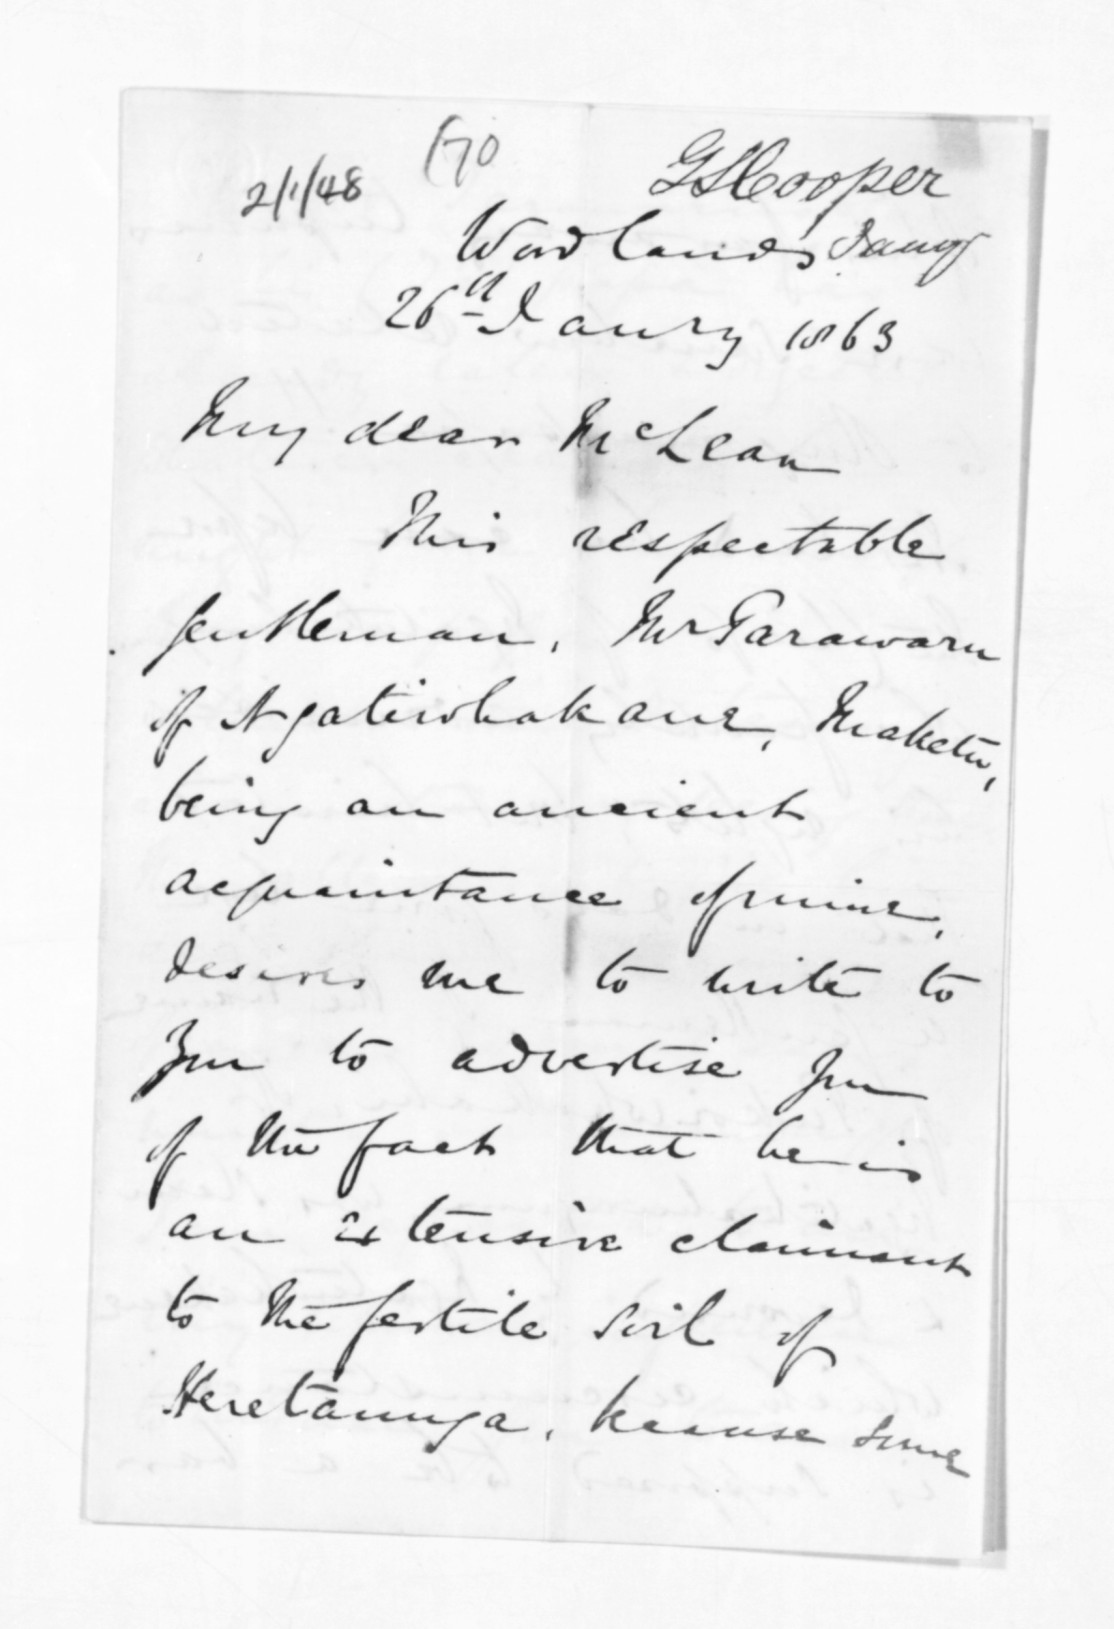 (70
2/1/48
GSCooper
Woodlands
26th Janry 1863
My dear McLean
This respectable
gentleman, Mr Parawaru
of Ngatiwhakane, Maketu,
being an ancient
acquaintance of mine,
desires me to write to
you to advertise you
of the fact that he is
an extensive claimant
to the fertile soil of
Heretaunga, because some